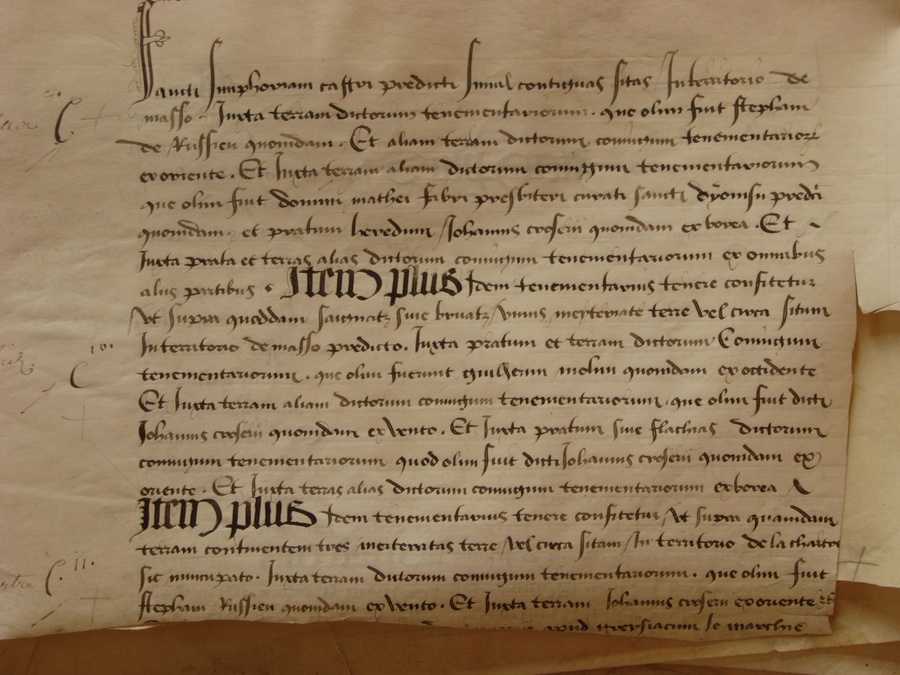 sancti Simphoriani castri predicti simul contiguas sitas In territorio de
masso. Juxta terram dictorum tenementariorum. que olim fuit stephani
de Russieu quondam. Et aliam terram dictorum coniugum tenementariorum
ex oriente. Et Juxta terram aliam dictorum coniugum tenementariorum
que olim fuit domini mathei fabri presbiteri curati sancti dyonisii predicti
quondam. et pratum heredum Johannis croserii quondam ex borea. Et
Juxta prata et terras alias dictorum coniugum tenementariorum ex omnibus
aliis partibus. Item plus Idem tenementarius tenere confitetur
Vt supra quoddam sive vnius meyteriate terre vel circa situm
In territorio de masso predicto. Juxta pratum et terram dictorum Coniugum
tenementariorum. que olim fuerunt guilhermi molini quondam ex occidente
Et Juxta terram aliam dictorum coniugum tenementariorum. que olim fuit dicti
Johannis croserii quondam ex vento. Et Juxta pratum sive flachias dictorum
coniugum tenementariorum quod olim fuit dicti Johannis croserii quondam ex
oriente. Et Juxta terras alias dictorum coniugum tenementariorum ex borea
Item plus Idem tenementarius tenere confitetur Vt supra quamdam
terram continentem tres meiteriatas terre vel circa sitam In territorio de la
sic nuncupato. Juxta terram dictorum coniugum tenementariorum. que olim fuit
stephani Russieu quondam ex vento. Et Juxta terram Johannis croserii ex oriente Et
apud le
10.
11.